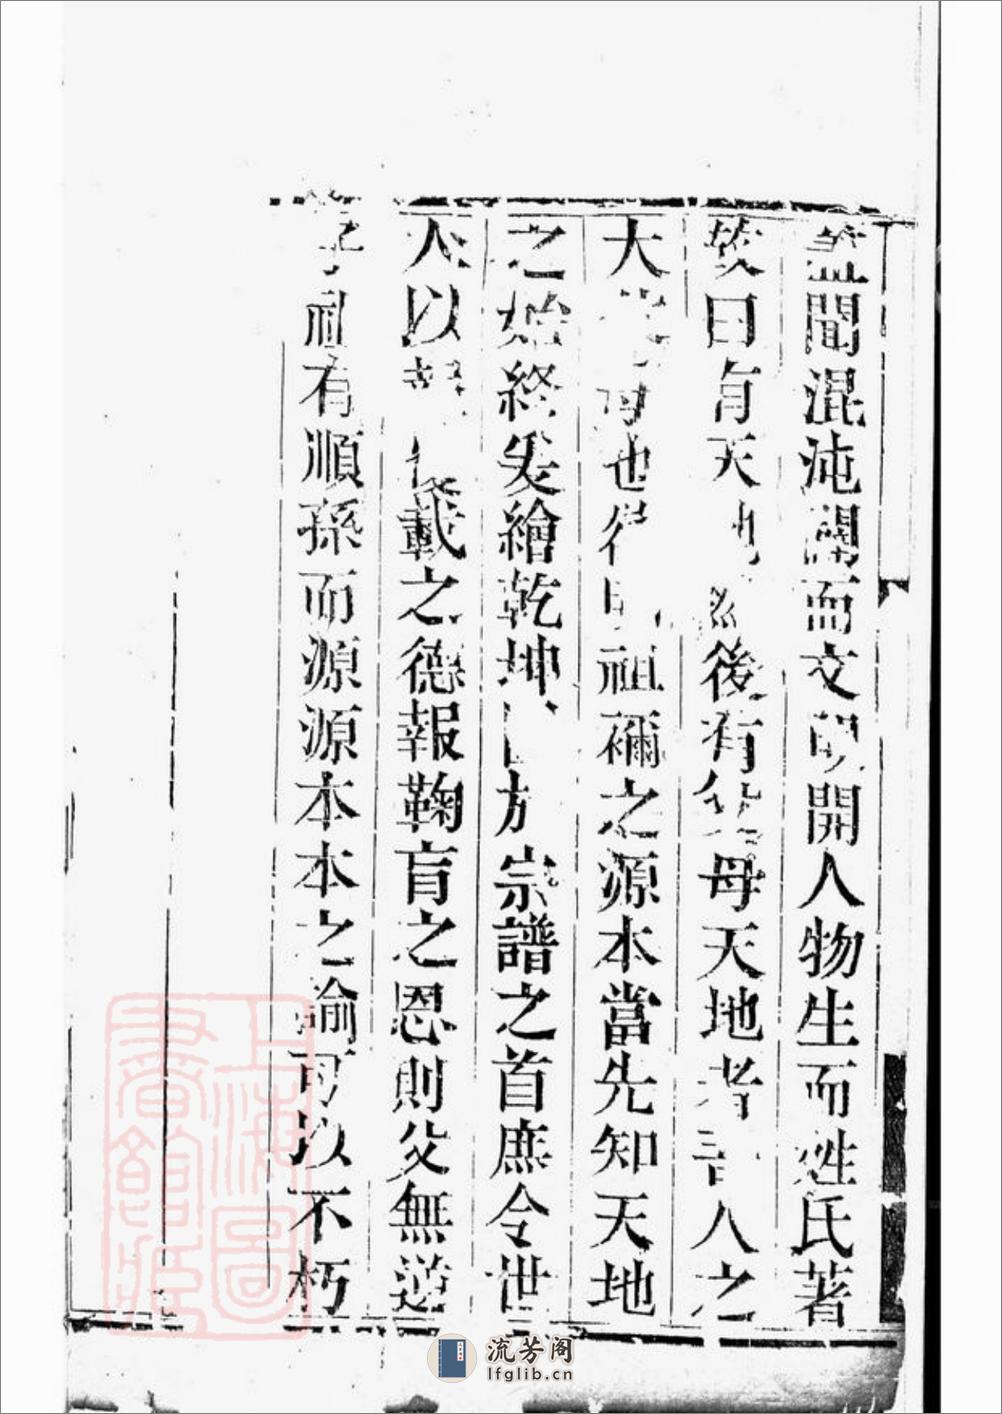 蓋聞混沌闢而文明開人物生而姓氏著
故曰有天地然後有父母天地者吾人之
大父母也欲明祖禰之源本當先知天地
之始終爰繪乾坤圖於宗譜之首庶令世
人以報覆載之德報鞠育之恩則父無逆
子祖有順孫而源源本本之論可以不朽
上海圖書館藏
流芳阁
lfglib.cn